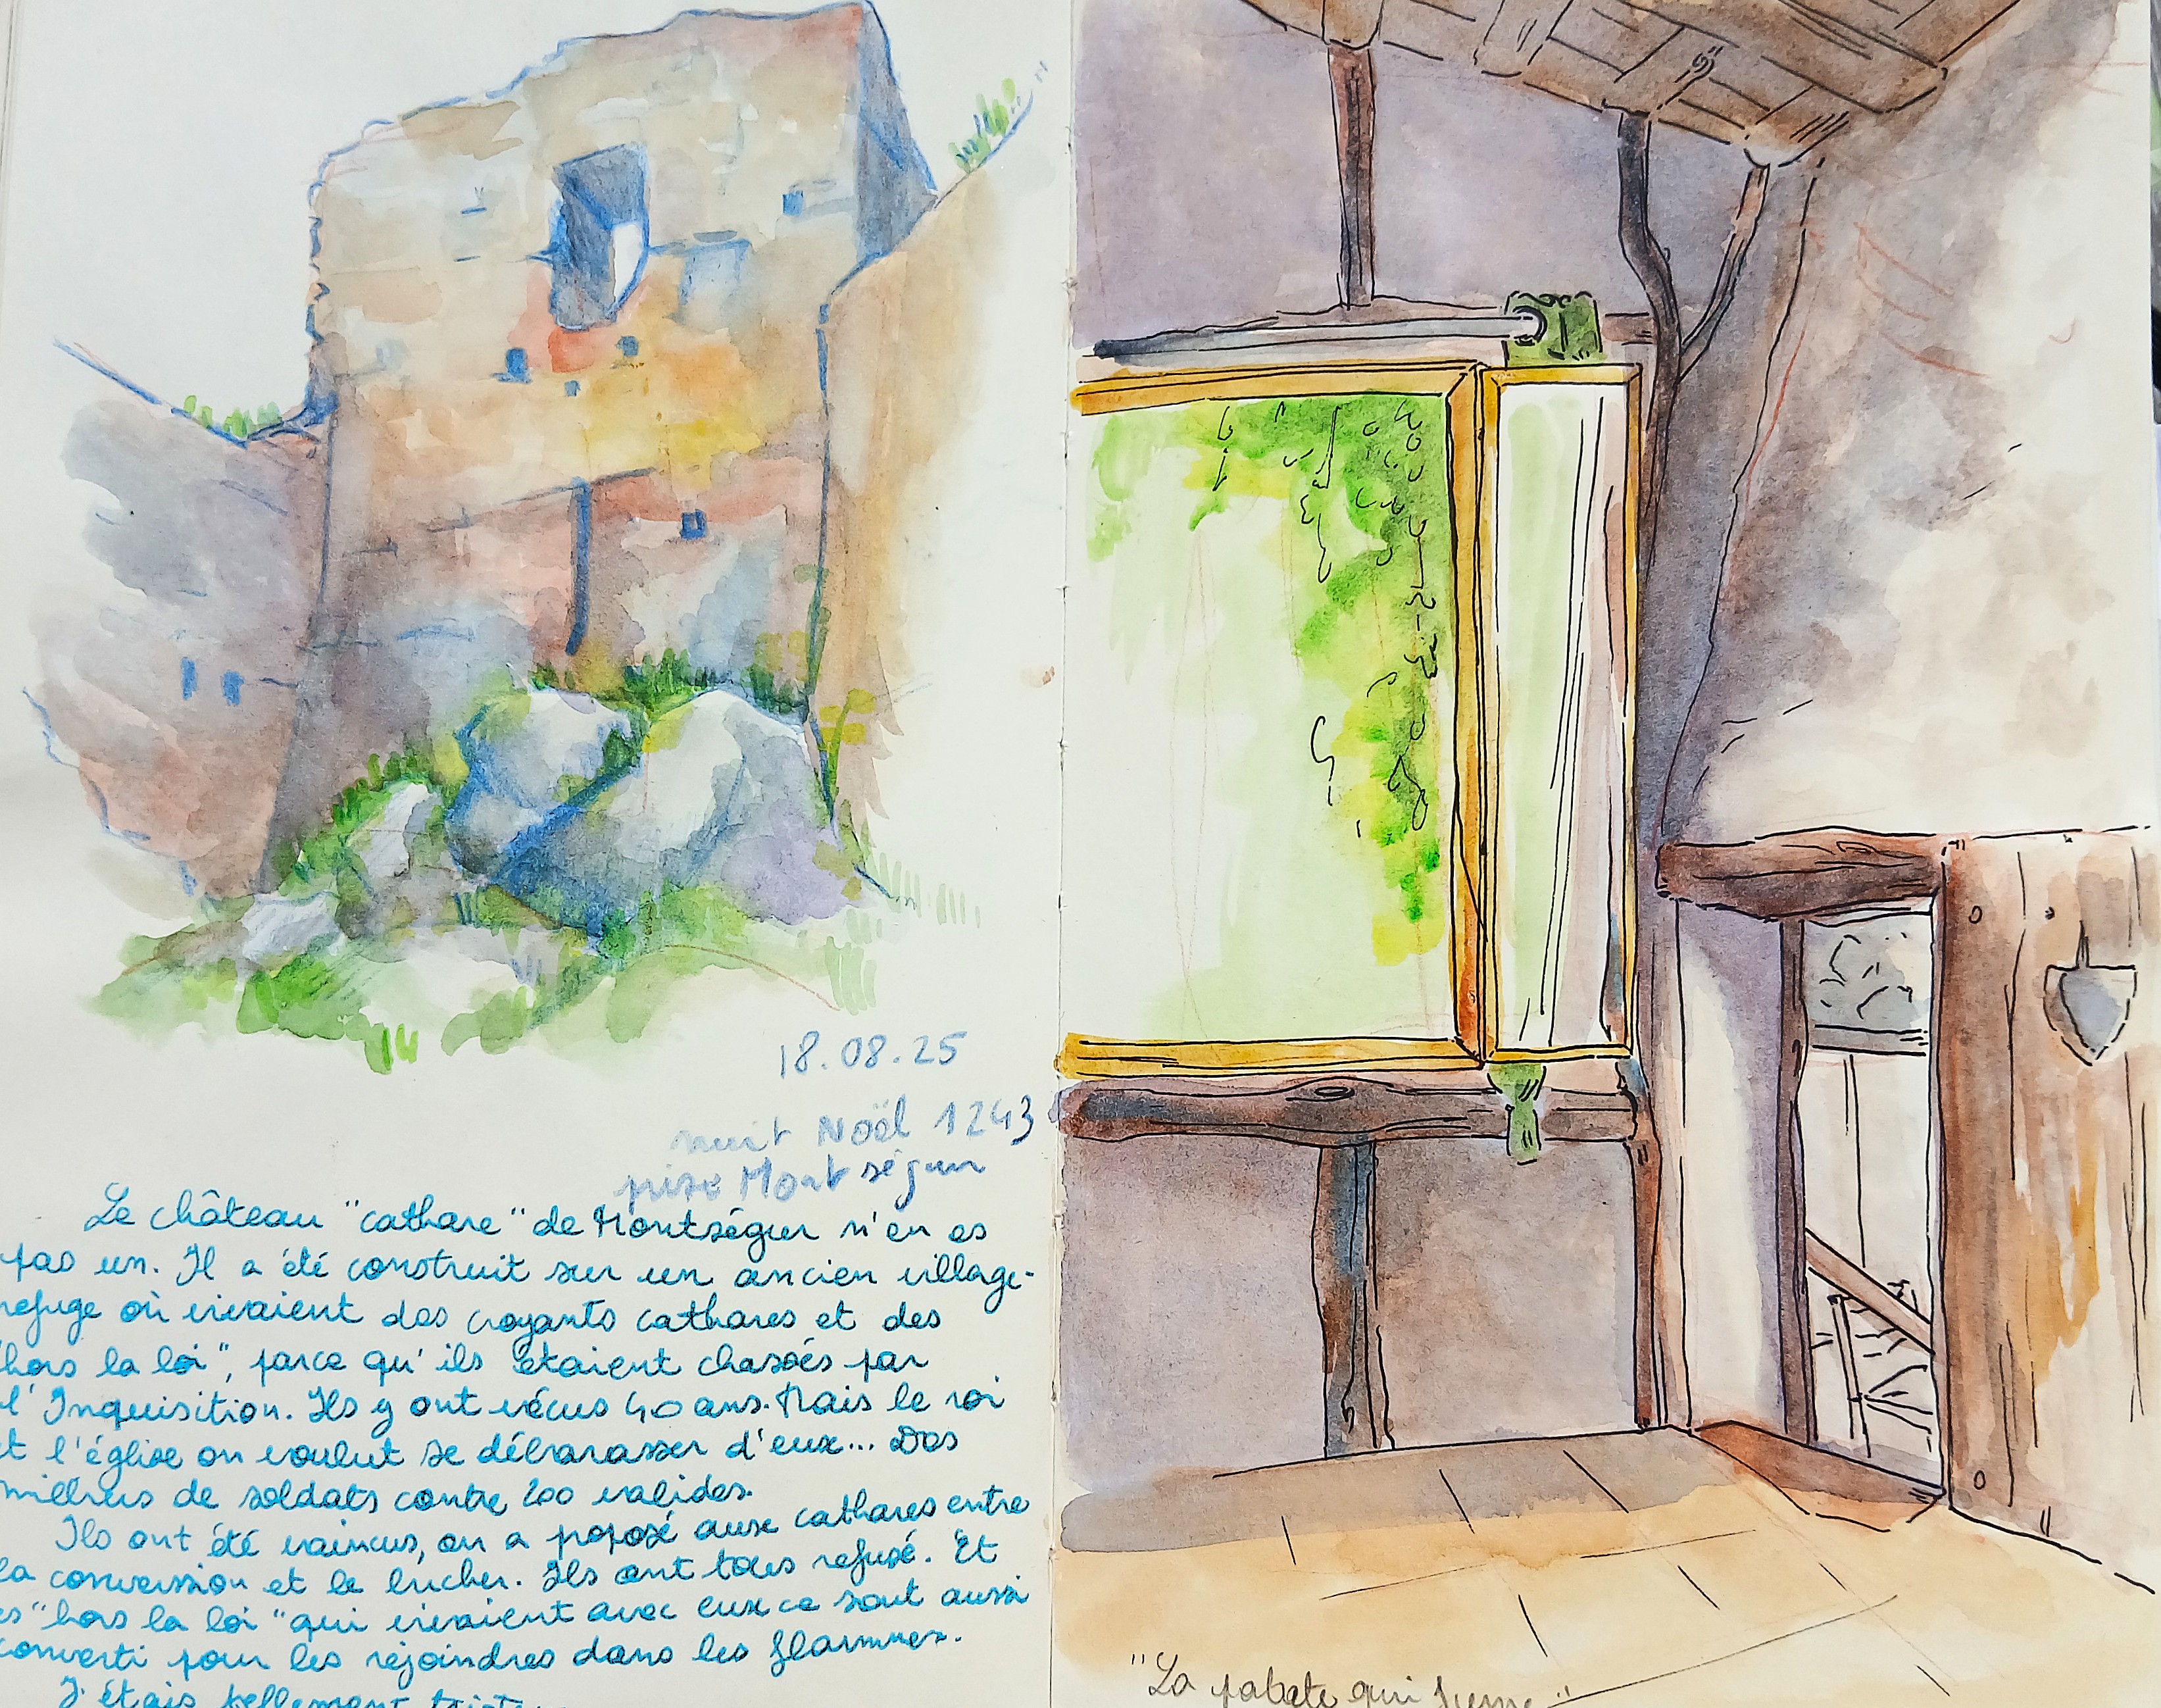 18.08.25
nuit Noël 1243
prise Montségur
Le château "cathare" de Montségur n'en es
pas un. Il a été construit sur un ancien village-
refuge où vivaient des croyants cathares et des
"hors la loi", parce qu'ils étaient chassés par
l'Inquisition. Ils y ont vécus 40 ans. Mais le roi
et l'église on voulut se débarasser d'eux... Des
milliers de soldats contre 200 valides.
Ils ont été vaincus, on a proposé aux cathares entre
la conversion et le bûcher. Ils ont tous refusé. Et
es "hors la loi" qui vivaient avec eux ce sont aussi
converti pour les rejoindres dans les flammes.
J'étais tellement triste
"La patate qui fume"